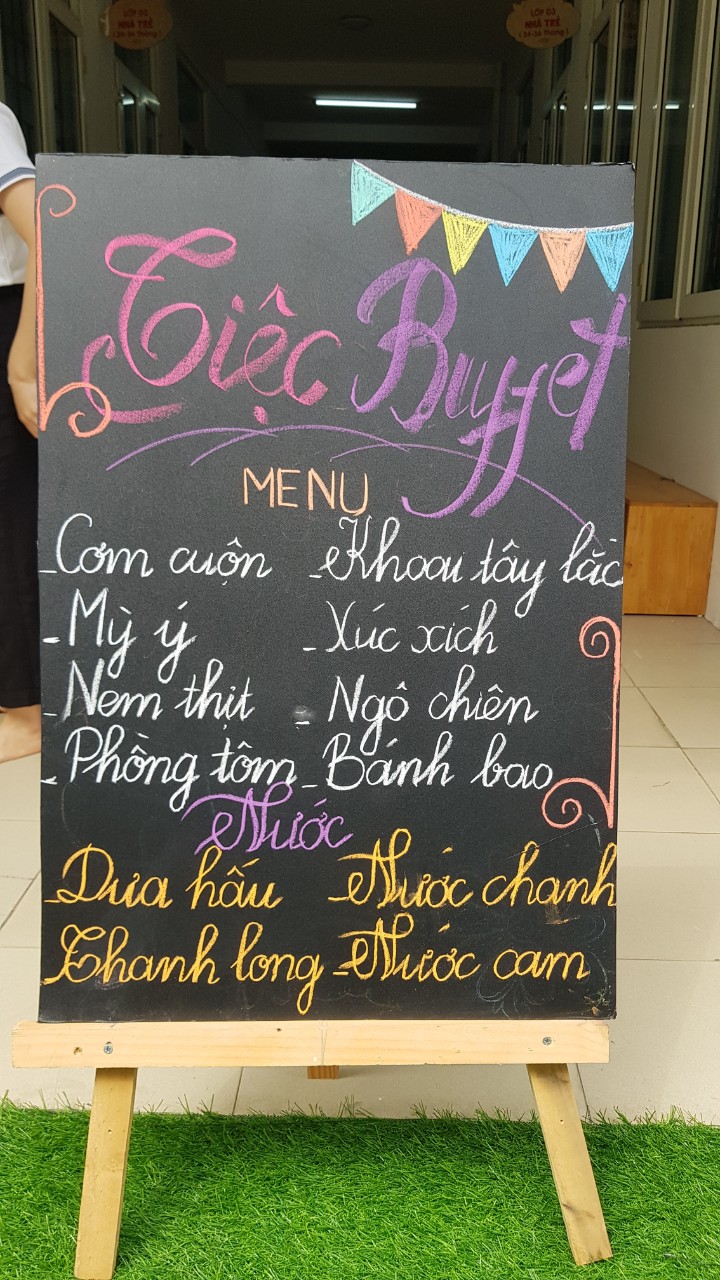 LỚP D3
NHÀ TRẺ
(24-36 tháng)
NHÀ TRẺ
Tiệc Buffet
MENU
- Cơm cuộn - Khoai tây lắc
- Mỳ ý - Xúc xích
- Nem thịt - Ngô chiên
- Phồng tôm - Bánh bao
Nước
- Dưa hấu - Nước chanh
- Thanh long - Nước cam